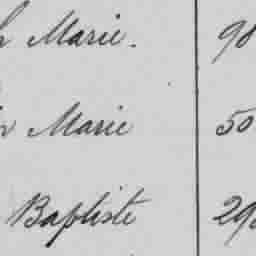 Marie. 98
Marie 50
Baptiste 29